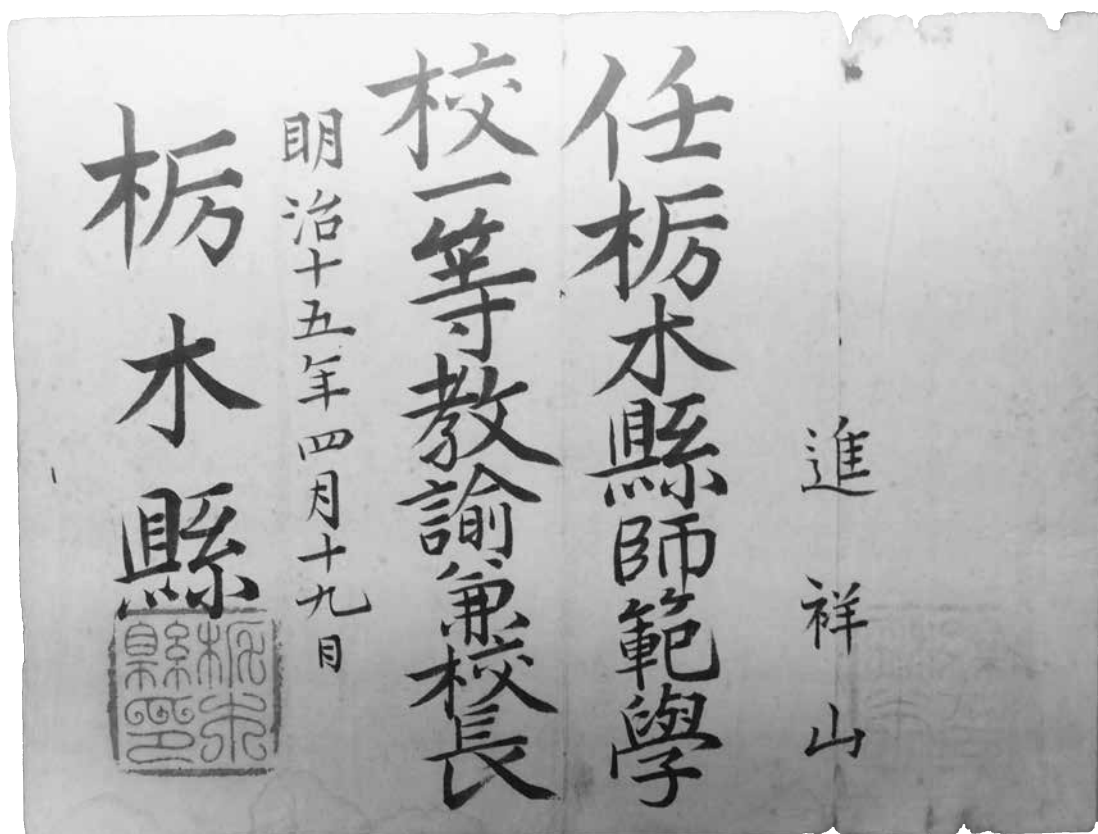 進祥山
任栃木縣師範學
校一等教諭兼校長
明治十五年四月十九日
栃木縣
栃木縣印